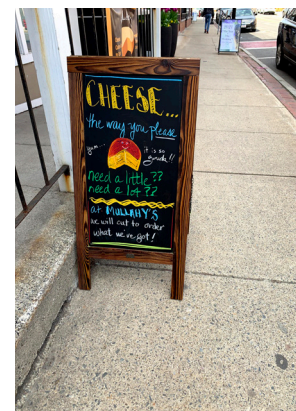 CHEESE...
the way you please
yum...
it is so
gouda!!
need a little??
need a lot??
at MULLAHY'S
we will cut to order
what we've got!